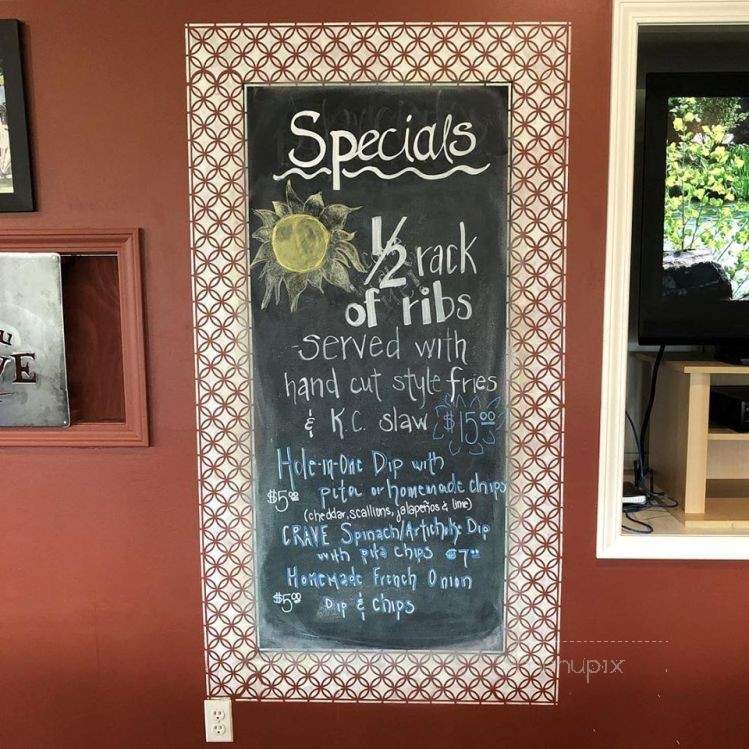 Specials
1/2 rack
of ribs
-served with
hand cut style fries
& K.C. slaw $15.00
Hole-in-One Dip with
$5.00 pita or homemade chips
(cheddar, scallions, jalapeños & lime)
CRAVE Spinach/Artichoke Dip
with pita chips $7.00
Homemade French Onion
$5.00 Dip & chips
VE